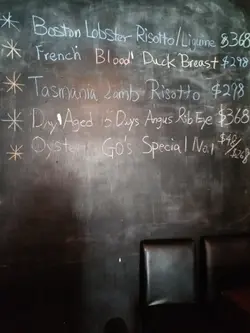 Boston Lobster Risotto/Liquine $368
French Blood Duck Breast $298
Tasmania Lamb Risotto $298
Dry Aged Days Angus Rib Eye $368
Oyster Go's Special No.1 $48/